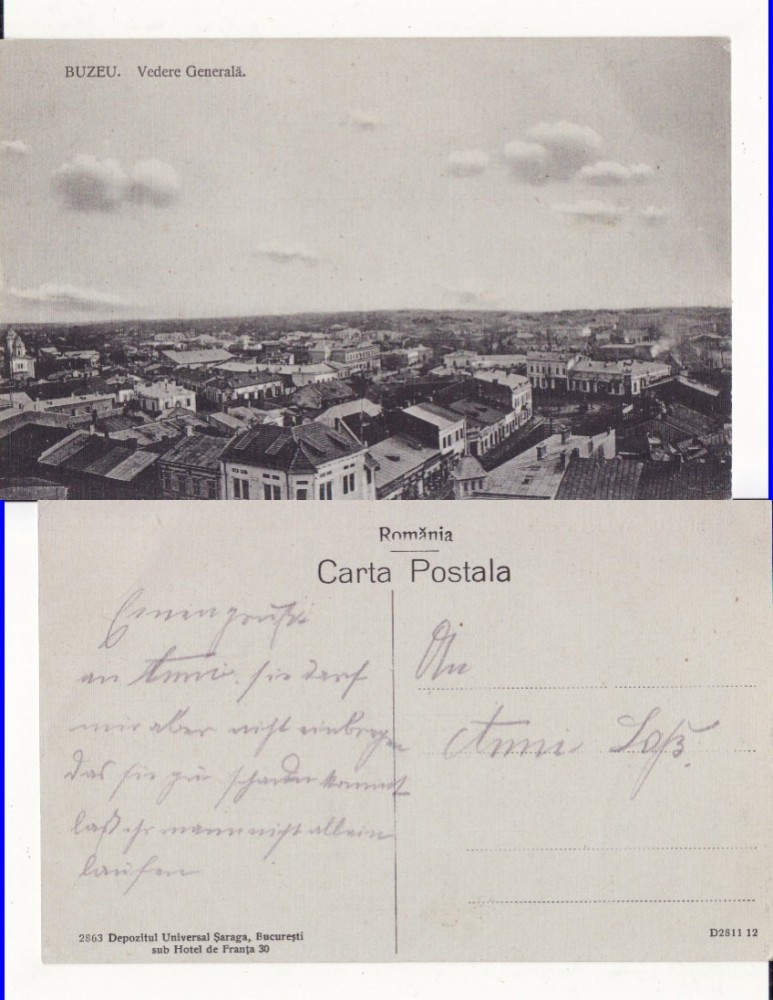 BUZEU. Vedere Generală.
România
Carta Postala
an Anni. sie darf
mir aber nicht
das sie zu schaden kommt
laß ihr mann nicht allein
laufen
An
Anni
2863 Depozitul Universal Șaraga, București
sub Hotel de Franța 30
D2811 12